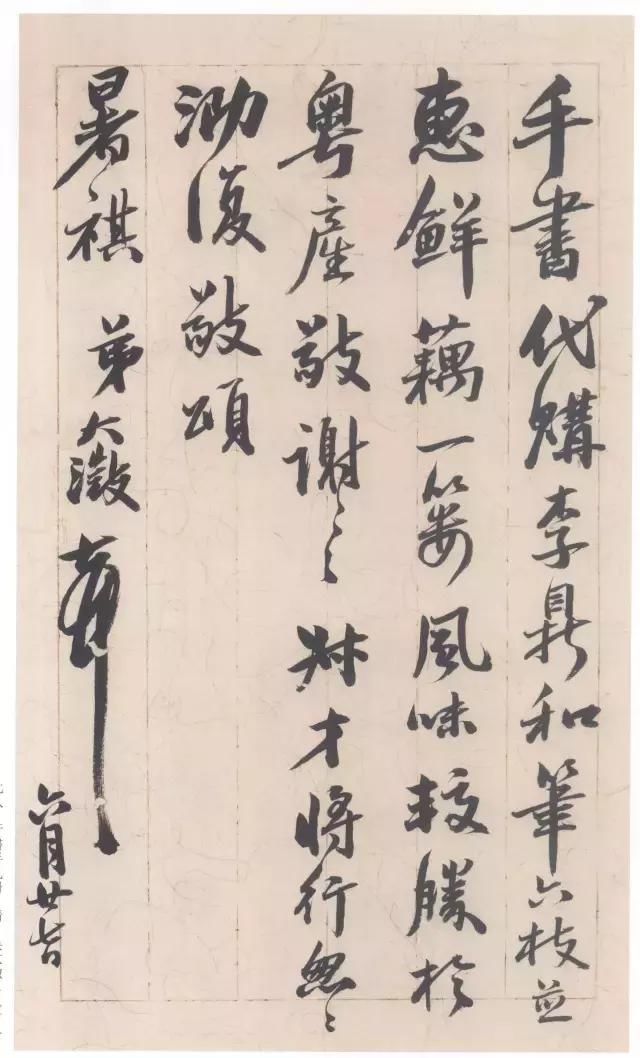 手書代購李鼎和筆六枝並
惠鮮藕一簍風味較勝於
粵產敬謝〻〻才將行匆〻
泐復敬頌
暑祺 弟大澂
六月廿七日